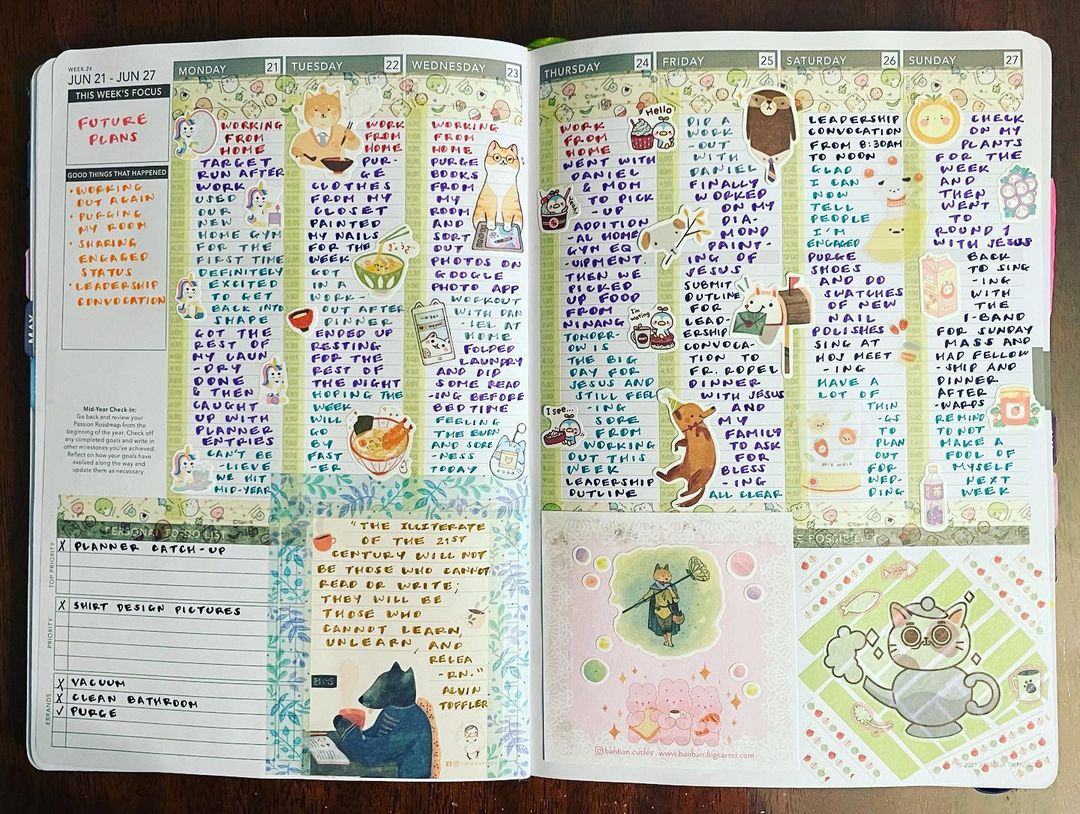 WEEK 26
JUN 21 - JUN 27
THIS WEEK'S FOCUS
FUTURE
PLANS
GOOD THINGS THAT HAPPENED
• WORKING
OUT AGAIN
• PURGING
MY ROOM
• SHARING
ENGAGED
STATUS
• LEADERSHIP
CONVOCATION
MAY
Mid-Year Check-In:
Go back and review your
Passion Roadmap from the
beginning of the year. Check off
any completed goals and write in
other milestones you've achieved.
Reflect on how your goals have
evolved along the way and
update them as necessary.
MONDAY 21
WORKING
FROM
HOME
TARGET
RUN AFTER
WORK
USED
OUR
NEW
HOME GYM
FOR THE
FIRST TIME
DEFINITELY
EXCITED
TO GET
BACK INTO
SHAPE
GOT THE
REST OF
MY LAUN
-DRY
DONE
& THEN
CAUGHT
UP WITH
PLANNER
ENTRIES
CAN'T BE
-LIEVE
WE HIT
MID-YEAR
TUESDAY 22
WORK
FROM
HOME
PUR-
GE
CLOTHES
FROM MY
CLOSET
PAINTED
MY NAILS
FOR THE
WEEK
GOT
IN A
WORK-
OUT AFTER
DINNER
ENDED UP
RESTING
FOR THE
REST OF
THE NIGHT
HOPING THE
WEEK
WILL
GO
BY
FAST
-ER
WEDNESDAY 23
WORKING
FROM
HOME
PURGE
BOOKS
FROM
MY
ROOM
AND
SORT
OUT
PHOTOS ON
GOOGLE
PHOTO APP
WORKOUT
WITH DAN
-IEL AT
HOME
FOLDED
LAUNDRY
AND DID
SOME READ
-ING BEFORE
BEDTIME
FEELING
THE BURN
AND SORE
-NESS
TODAY
THURSDAY 24
WORK
FROM
HOME
WENT WITH
DANIEL
& MOM
TO PICK
-UP
ADDITION
-AL HOME
GYM EQ
-UIPMENT.
THEN WE
PICKED
UP FOOD
FROM
NINANG
TOMORR-
OW IS
THE BIG
DAY FOR
JESUS AND
I STILL FEEL
-ING
SORE
FROM
WORKING
OUT THIS
WEEK
LEADERSHIP
OUTLINE
Hello
I'm waiting
I see...
FRIDAY 25
DID A
WORK
-OUT
WITH
DANIEL
FINALLY
WORKED
ON MY
DIA-
MOND
PAINT-
ING OF
JESUS
SUBMIT
OUTLINE
FOR
LEAD-
ERSHIP
CONVOCA-
TION TO
FR. RODEL
DINNER
WITH JESUS
AND
MY
FAMILY
TO ASK
FOR
BLESS
-ING
ALL CLEAR
SATURDAY 26
LEADERSHIP
CONVOCATION
FROM 8:30AM
TO NOON
GLAD
I CAN
NOW
TELL
PEOPLE
I'M
ENGAGED
PURGE
SHOES
AND DO
SWATCHES
OF NEW
NAIL
POLISHES
SING AT
HOJ MEET
-ING
HAVE A
LOT OF
THIN
-GS
TO
PLAN
OUT
FOR
WED-
DING
SUNDAY 27
CHECK
ON MY
PLANTS
FOR THE
WEEK
AND
THEN
WENT
TO
ROUND 1
WITH JESUS
BACK
TO SING
-ING
WITH
THE
I-BAND
FOR SUNDAY
MASS AND
HAD FELLOW
-SHIP AND
DINNER
AFTER
-WARDS
REMIND
TO NOT
MAKE A
FOOL OF
MYSELF
NEXT
WEEK
PERSONAL TO-DO LIST
TOP PRIORITY
X PLANNER CATCH-UP
PRIORITY
X SHIRT DESIGN PICTURES
ERRANDS
X VACUUM
X CLEAN BATHROOM
✓ PURGE
"THE ILLITERATE
OF THE 21ST
CENTURY WILL NOT
BE THOSE WHO CANNOT
READ OR WRITE;
THEY WILL BE
THOSE WHO
CANNOT LEARN,
UNLEARN, AND
RELEA
-RN."
ALVIN
TOFFLER
banban.cuties www.banban.bigcartel.com
POSSIBILITY